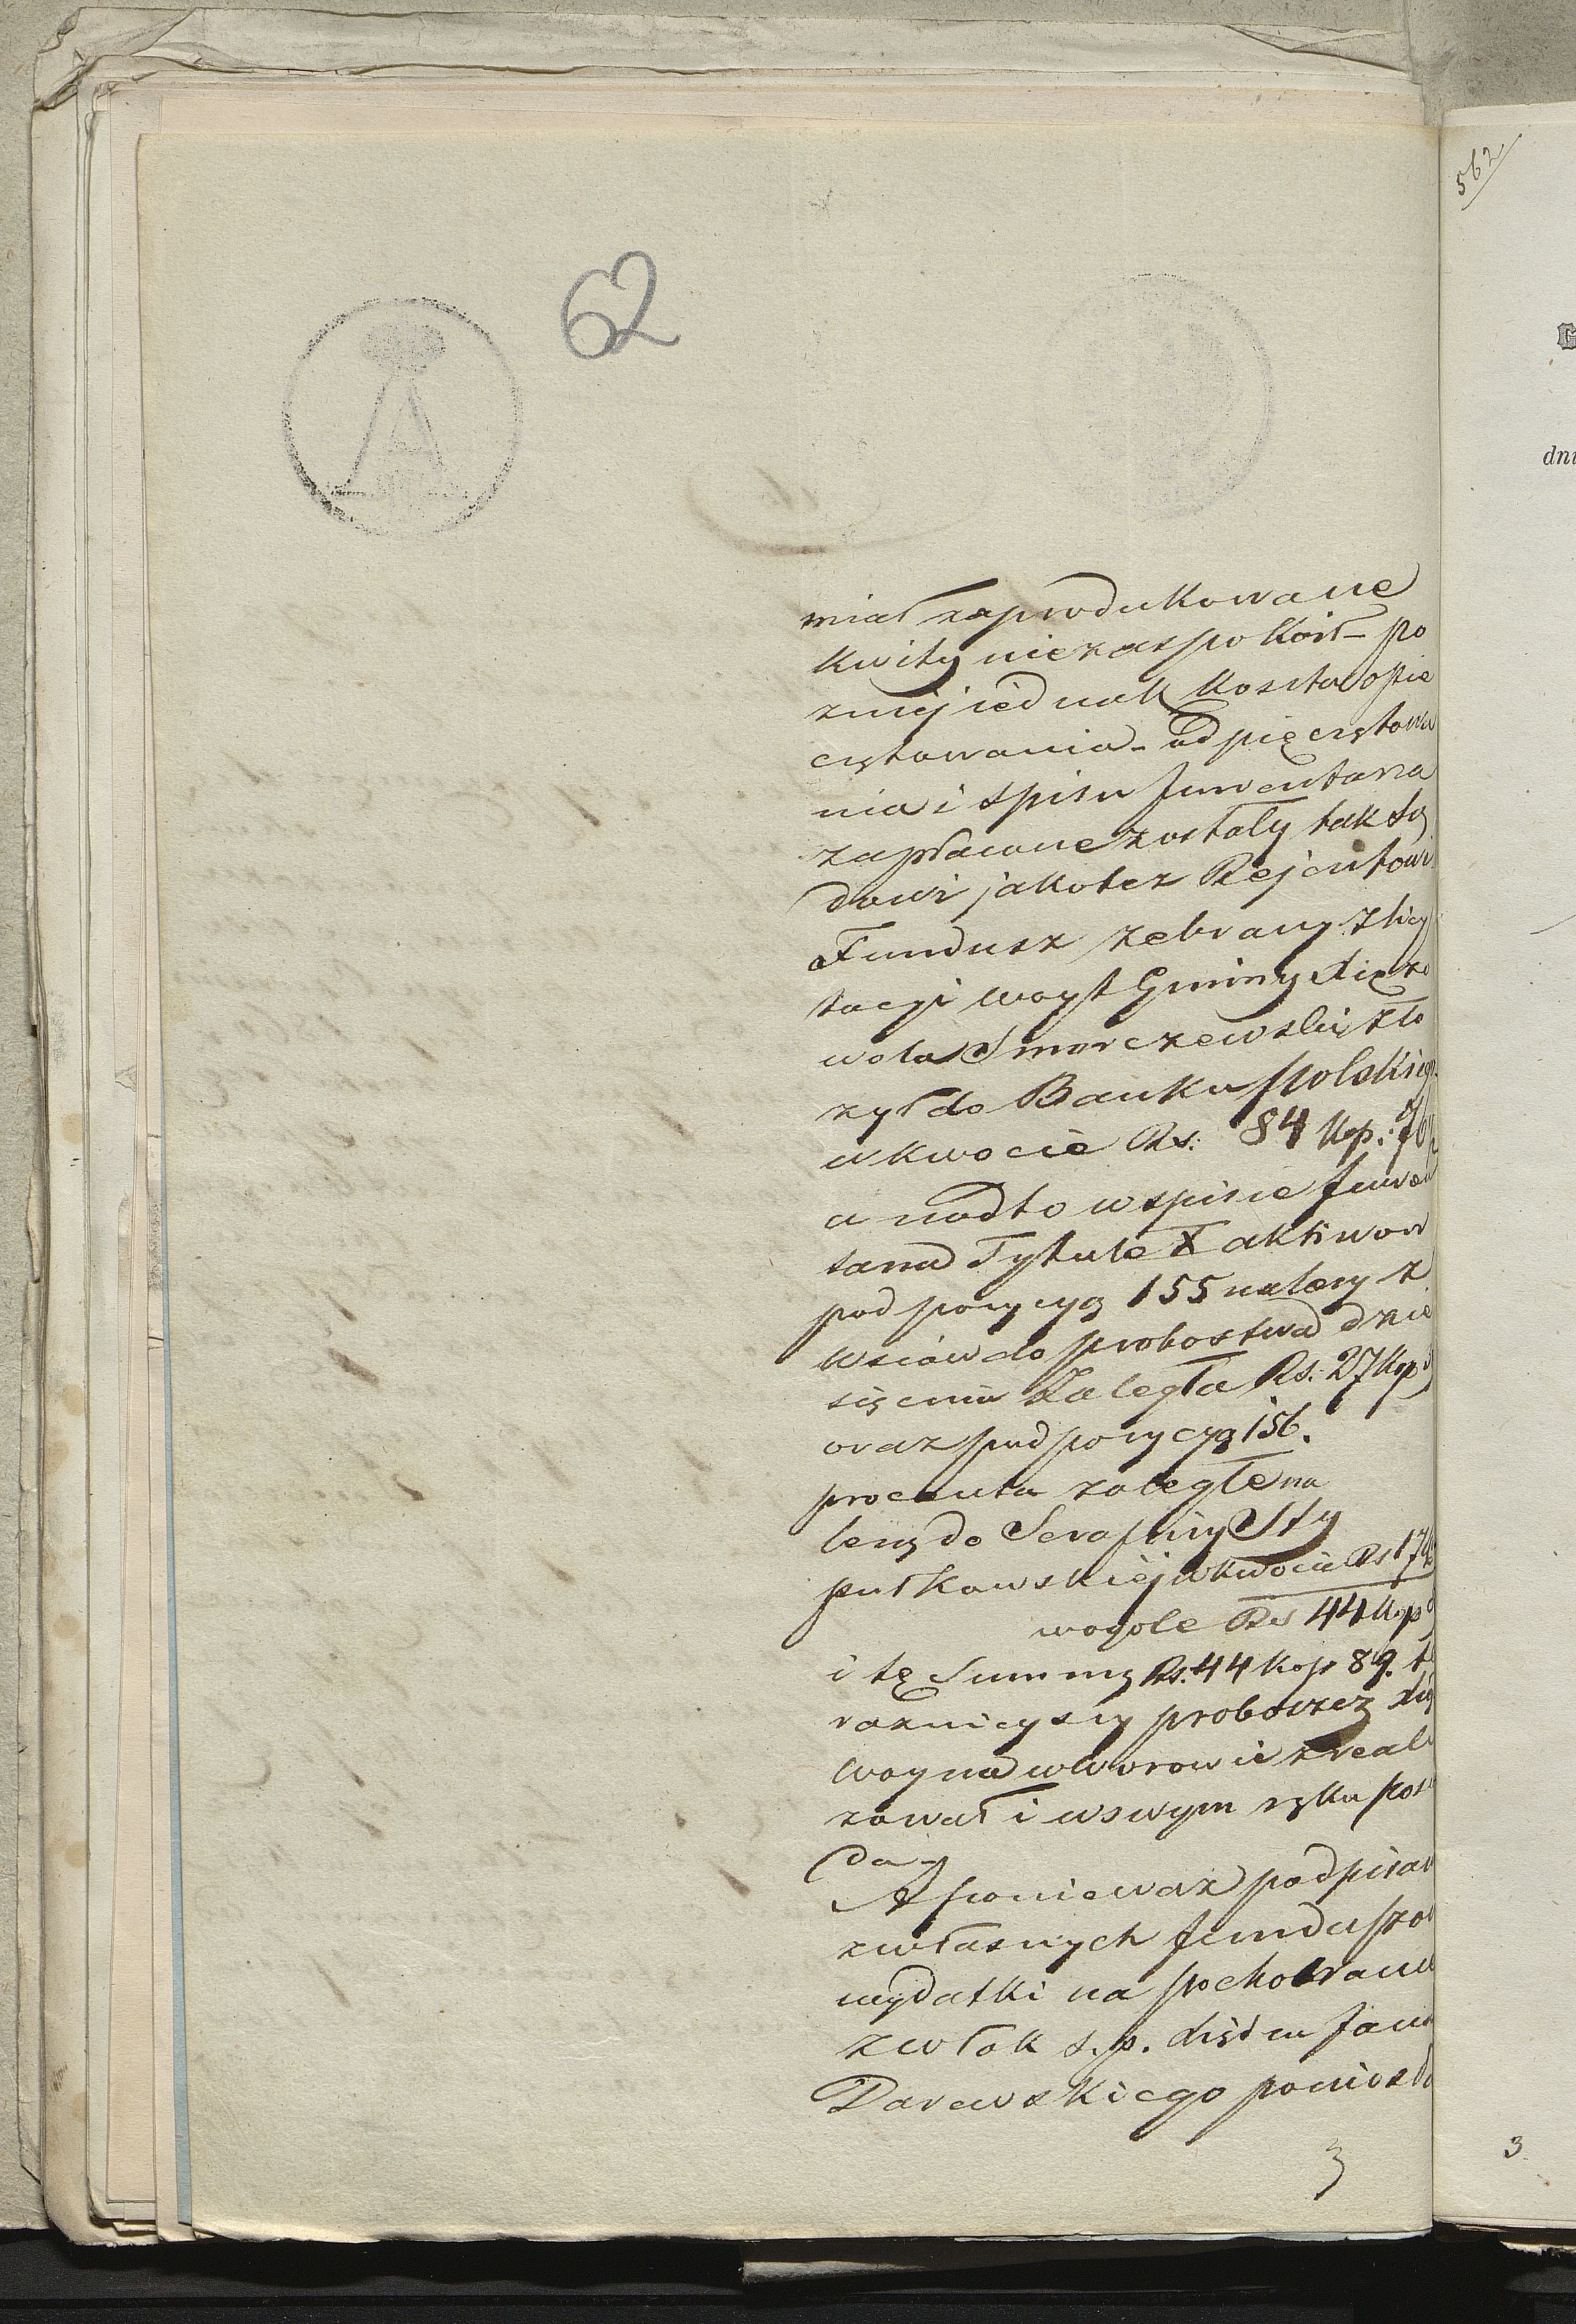 562
62
miał zaprodukowane
kwity niezaspokoił – po
zniej iednak koszta opie
czętowania – odpięczętowa
nia i spisu Inwentarza
zapłacone zostały tak Są
dowi jakotez Rejentowi
Fundusz zebrany z licy
tacyi woyt Gminy Xięzo
wola Smorczewski zło
zył do Banku polskiego
w kwocie Rs: 84 kop: 76
a nadto w spisie Inwen
tarza Tytule X aktiwow
pod pozycyą 155 nalezy z
wsiów do probostwa dzie
sięcina Zaległa Rs: 27 kop
oraz pod pozycyą 156.
procenta zaległe na
lezą do Serafiny Sty
pułkowskiej w kwocie Rs 17
wogole Rs 44 kop
i tę Summę Rs. 44 kop 89. te
raznieyszy proboszcz Xią
Woyna w Worowie zreali
zował i w swym ręku posia
da –
A poniewaz podpisan
z własnych funduszow
wydatki na pochowanie
zwłok s. p. Xiędza Jana
Darewskiego poniosło
3
dni
3